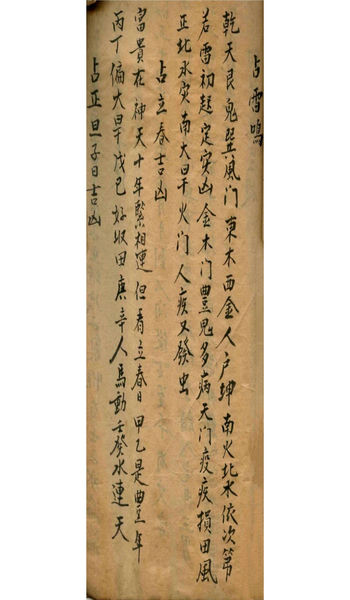 占雪鳴
乾天艮鬼巽風门東木西金人户坤南火北水依次第
若雪初起定灾凶金木门豊鬼多病天门疫疾損田風
正北水灾南大旱火门人疾又發虫
占立春吉凶
富貴在神天十年緊相連但看立春日甲乙是豊年
丙丁偏大旱戊己好收田庚辛人馬動壬癸水連天
占正旦子日吉凶